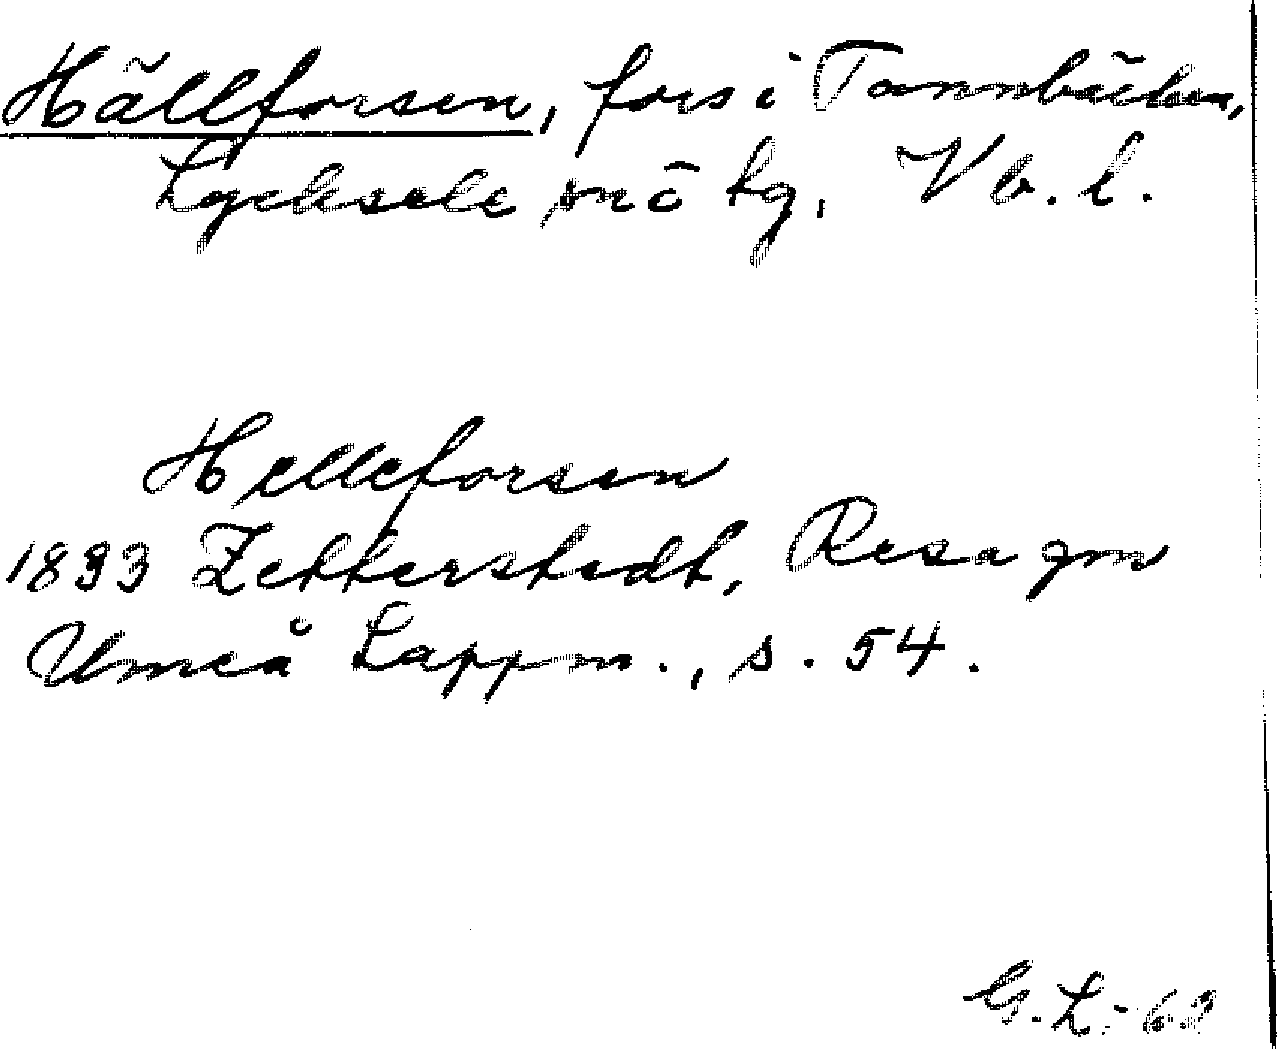 Hällforsen, fors i Tannbäcken,
Lycksele snö tg, Vb. l.
Helleforsen
1833 Zetterstedt, Resa gm
Umeå Lappm., s. 54.
G. L. - 63